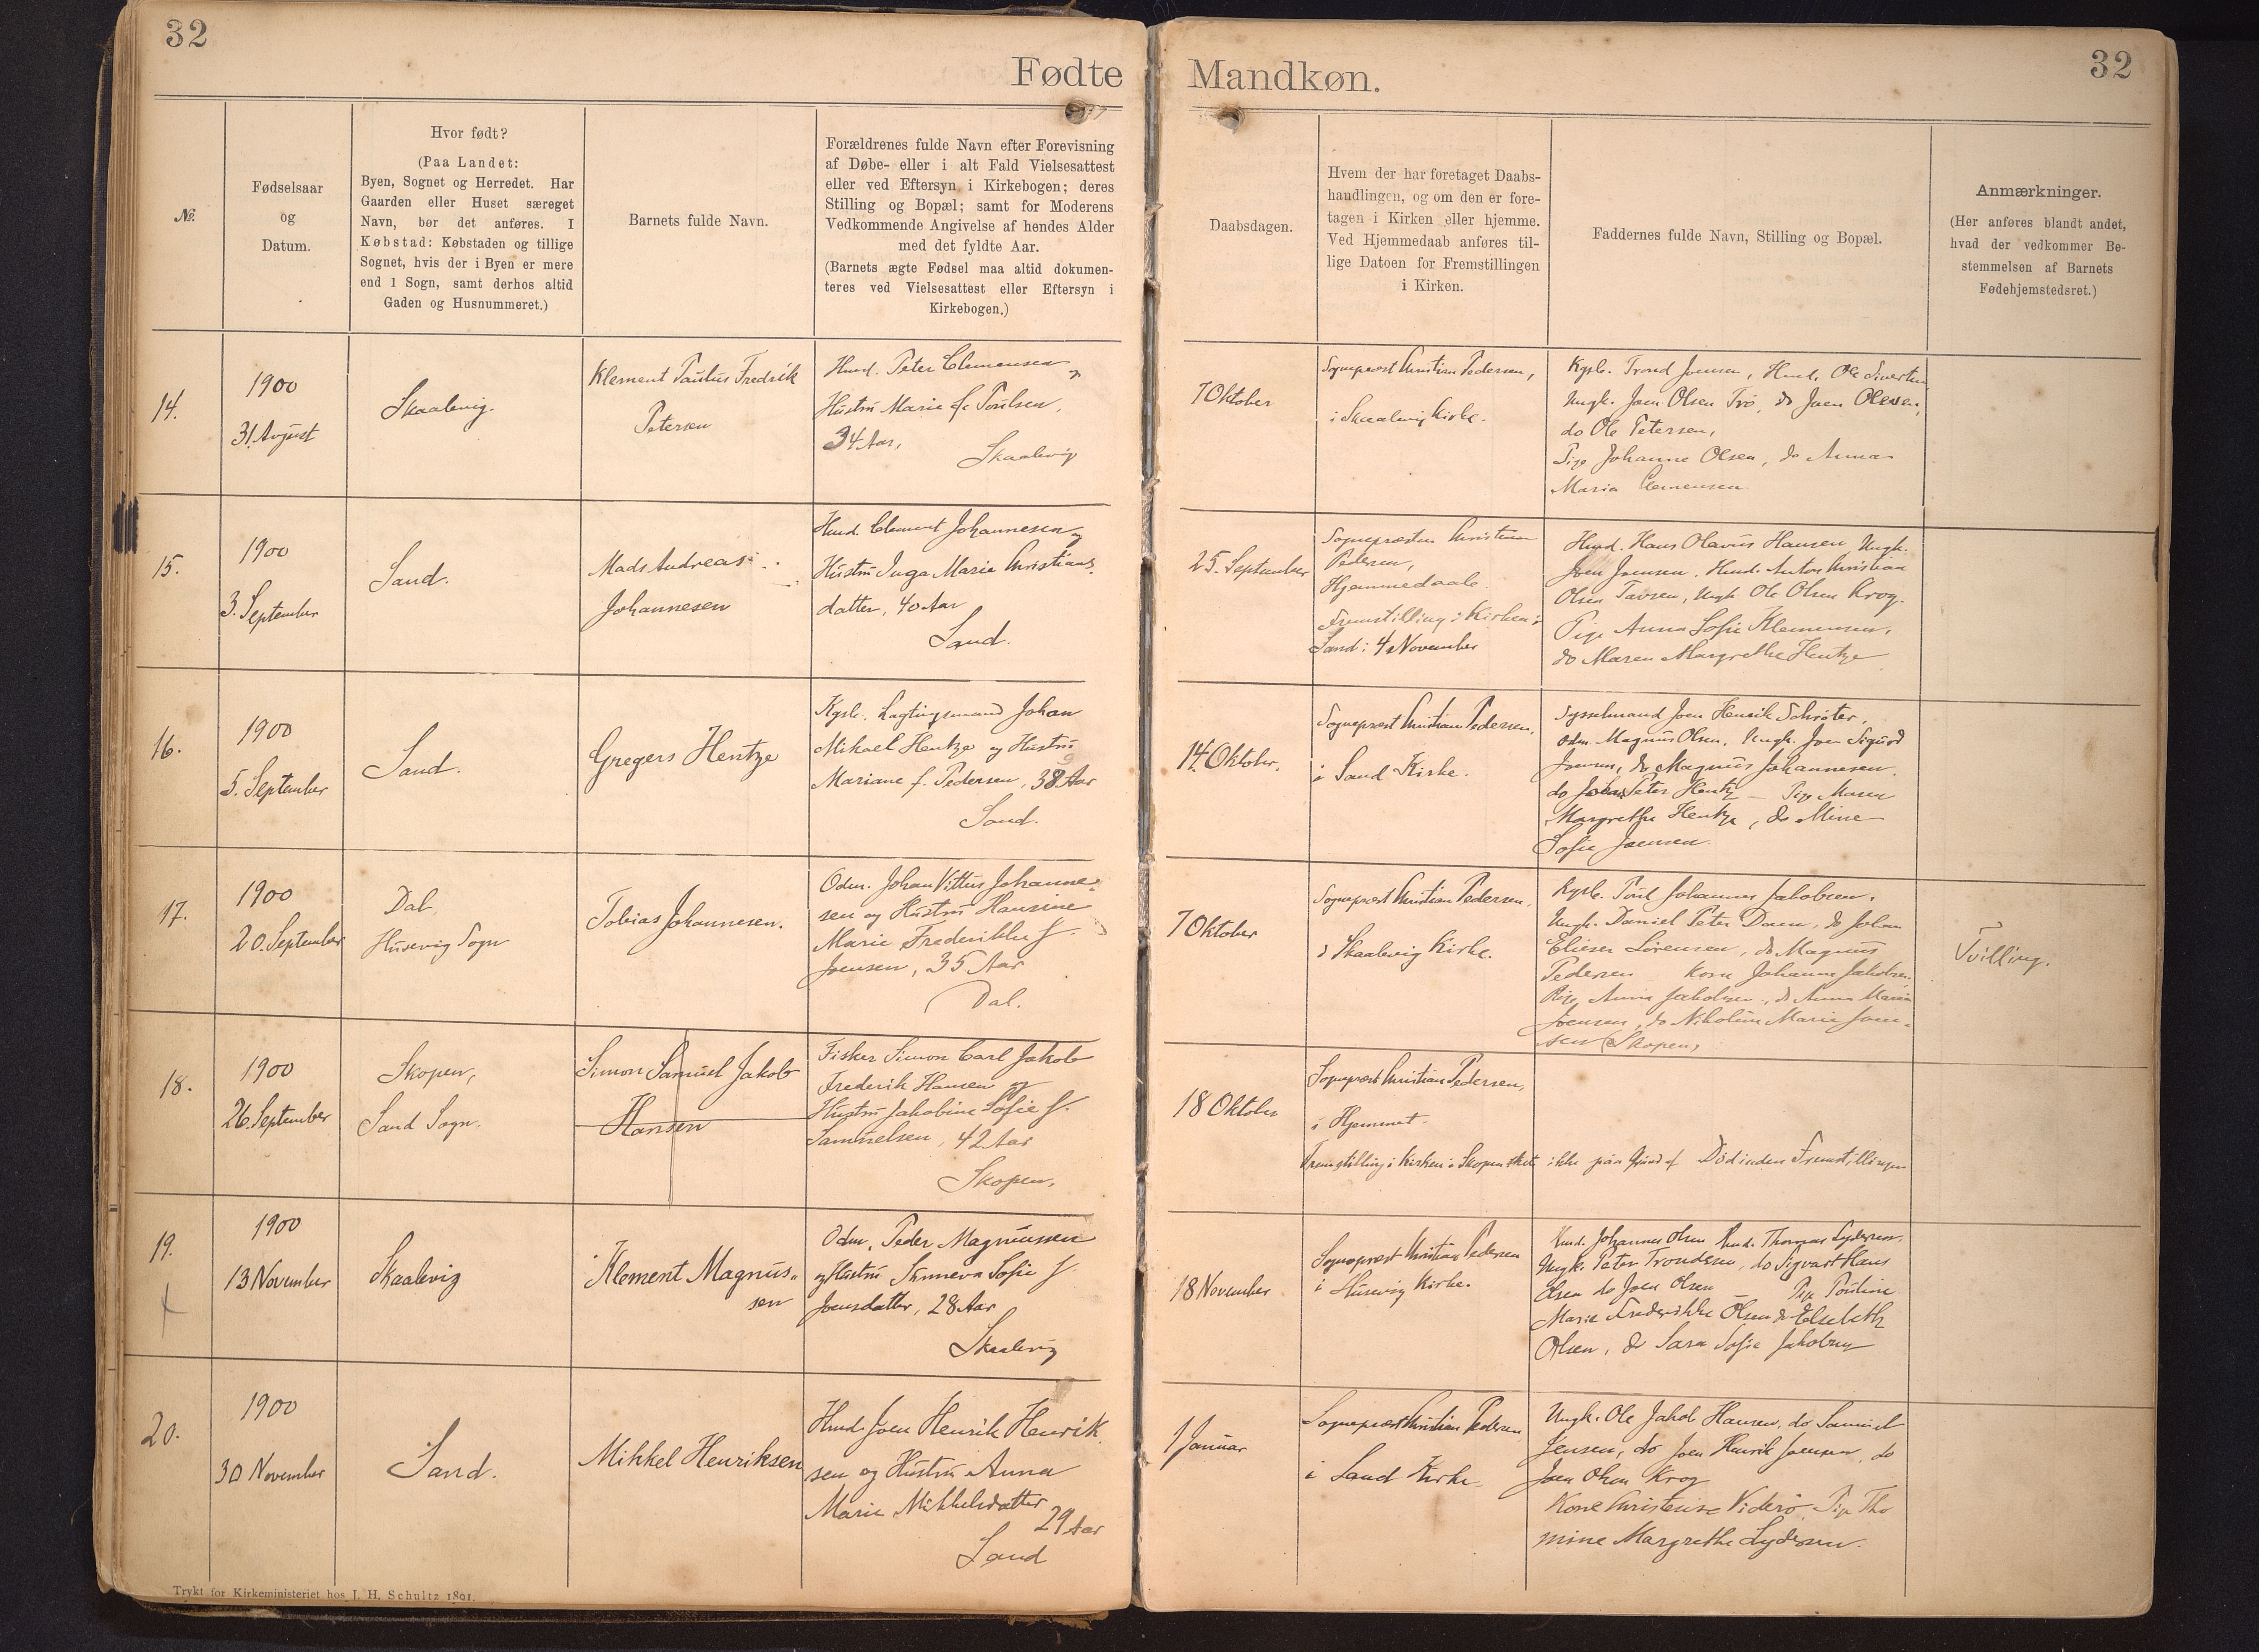 32
Fødte
Mandkøn.
32
№.
Fødselsaar
og
Datum.
Hvor født?
(Paa Landet:
Byen, Sognet og Herredet. Har
Gaarden eller Huset særeget
Navn, bør det anføres. I
Købstad: Købstaden og tillige
Sognet, hvis der i Byen er mere
end 1 Sogn, samt derhos altid
Gaden og Husnummeret.)
Barnets fulde Navn.
Forældrenes fulde Navn efter Forevisning
af Døbe- eller i alt Fald Vielsesattest
eller ved Eftersyn i Kirkebogen; deres
Stilling og Bopæl; samt for Moderens
Vedkommende Angivelse af hendes Alder
med det fyldte Aar.
(Barnets ægte Fødsel maa altid dokumen-
teres ved Vielsesattest eller Eftersyn i
Kirkebogen.)
Daabsdagen.
Hvem der har foretaget Daabs-
handlingen, og om den er fore-
tagen i Kirken eller hjemme.
Ved Hjemmedaab anføres til-
lige Datoen for Fremstillingen
i Kirken.
Faddernes fulde Navn, Stilling og Bopæl.
Anmærkninger.
(Her anføres blandt andet,
hvad der vedkommer Be-
stemmelsen af Barnets
Fødehjemstedsret.)
14.
1900
31. Avgust
Skaalevig.
Klement Paulus Fredrik
Petersen
Hmd. Peter Clemensen
Hustru Marie f. Poulsen,
34 Aar,
Skaalevig
7 Oktober
Sognepræst Christian Pedersen,
i Skaalevig Kirke.
Kgsb. Trond Joensen, Hmd. Ole Sivertsen
Ungk. Joen Olsen Trø, do Joen Olesen,
do Ole Petersen,
Pige Johanne Olsen, do Anna
Maria Clemensen
15.
1900
3. September
Sand.
Mads Andreas
Johannesen
Hmd. Clement Johannesen og
Hustru Inga Marie Christians-
datter, 40 Aar
Sand.
25. September
Sognepræsten Christian
Pedersen,
Hjemmedaab
Fremstilling i Kirken i
Sand: 4 November
Hmd. Hans Olavus Hansen Ungk.
Joen Joensen. Hmd. Anton Christian
Olsen Tavsen, Ungk Ole Olsen Krog.
Pige Anna Sofie Klemensen,
do Maren Margrethe Hentze
16.
1900
5. September
Sand.
Gregers Hentze
Kgsb. Lagtingsmand Johan
Mikael Hentze og Hustru
Mariane f. Pedersen, 38 Aar
Sand.
14. Oktober.
Sognepræst Christian Pedersen,
i Sand Kirke.
Sysselmand Joen Henrik Schrøter,
Odm. Magnus Olsen, Ungk. Joen Sigurd
Joensen, do Magnus Johannesen.
do Johan Peter Hentze – Pige Maren
Margrethe Hentze, do Mine
Sofie Joensen.
17.
1900
20. September
Dal
Husevig Sogn
Tobias Johannesen.
Odm. Johan Vittus Johanne-
sen og Hustru Hansine
Marie Frederikke f.
Joensen, 35 Aar
Dal.
7 Oktober
Sognepræst Christian Pedersen,
i Skaalevig Kirke.
Kgsb. Poul Johannes Jakobsen,
Ungk. Daniel Peter Dam, do Johan
Elieser Sørensen, do Magnus
Pedersen Kone Johanne Jakobsen,
Pige Anna Jakobsen, do Anna Maria
Joensen, do Nikoline Marie Joen-
sen (Skopen)
Tvilling.
18.
1900
26. September
Skopen,
Sand Sogn.
Simon Samuel Jakob
Hansen
Fisker Simon Carl Jakob
Frederik Hansen og
Hustru Jakobine Sofie f.
Samuelsen, 42 Aar
Skopen,
18 Oktober
Sognepræst Christian Pedersen,
i Hjemmet.
Fremstilling i Kirken i Skopen skete ikke paa Grund af Død inden Fremstillingen
19.
1900
13 November
Skaalevig
Klement Magnus-
sen
Odm. Peder Magnussen
og Hustru Sunneva Sofie f.
Joensdatter, 28 Aar
Skaalevig
18 November
Sognepræst Christian Pedersen
i Husevig Kirke.
Hmd. Johannes Olsen Hmd. Thomas Lydersen,
Ungk. Peter Trondesen, do Sigvart Hans
Olsen do Joen Olsen – Pige Pouline
Marie Frederikke Olsen do Elsebeth
Olsen, do Sara Sofie Jakobsen
20.
1900
30 November
Sand.
Mikkel Henriksen
Hmd. Joen Henrik Henrik-
sen og Hustru Anna
Marie Mikkelsdatter
29 Aar
Sand
1 Januar
Sognepræst Christian Pedersen
i Sand Kirke.
Ungk. Ole Jakob Hansen, do Samuel
Jensen, do Joen Henrik Joensen, do
Joen Olsen Krog
Kone Christense Viderø, Pige Tho
mine Margrethe Lydersen.
Trykt for Kirkeministeriet hos J. H. Schultz 1891.